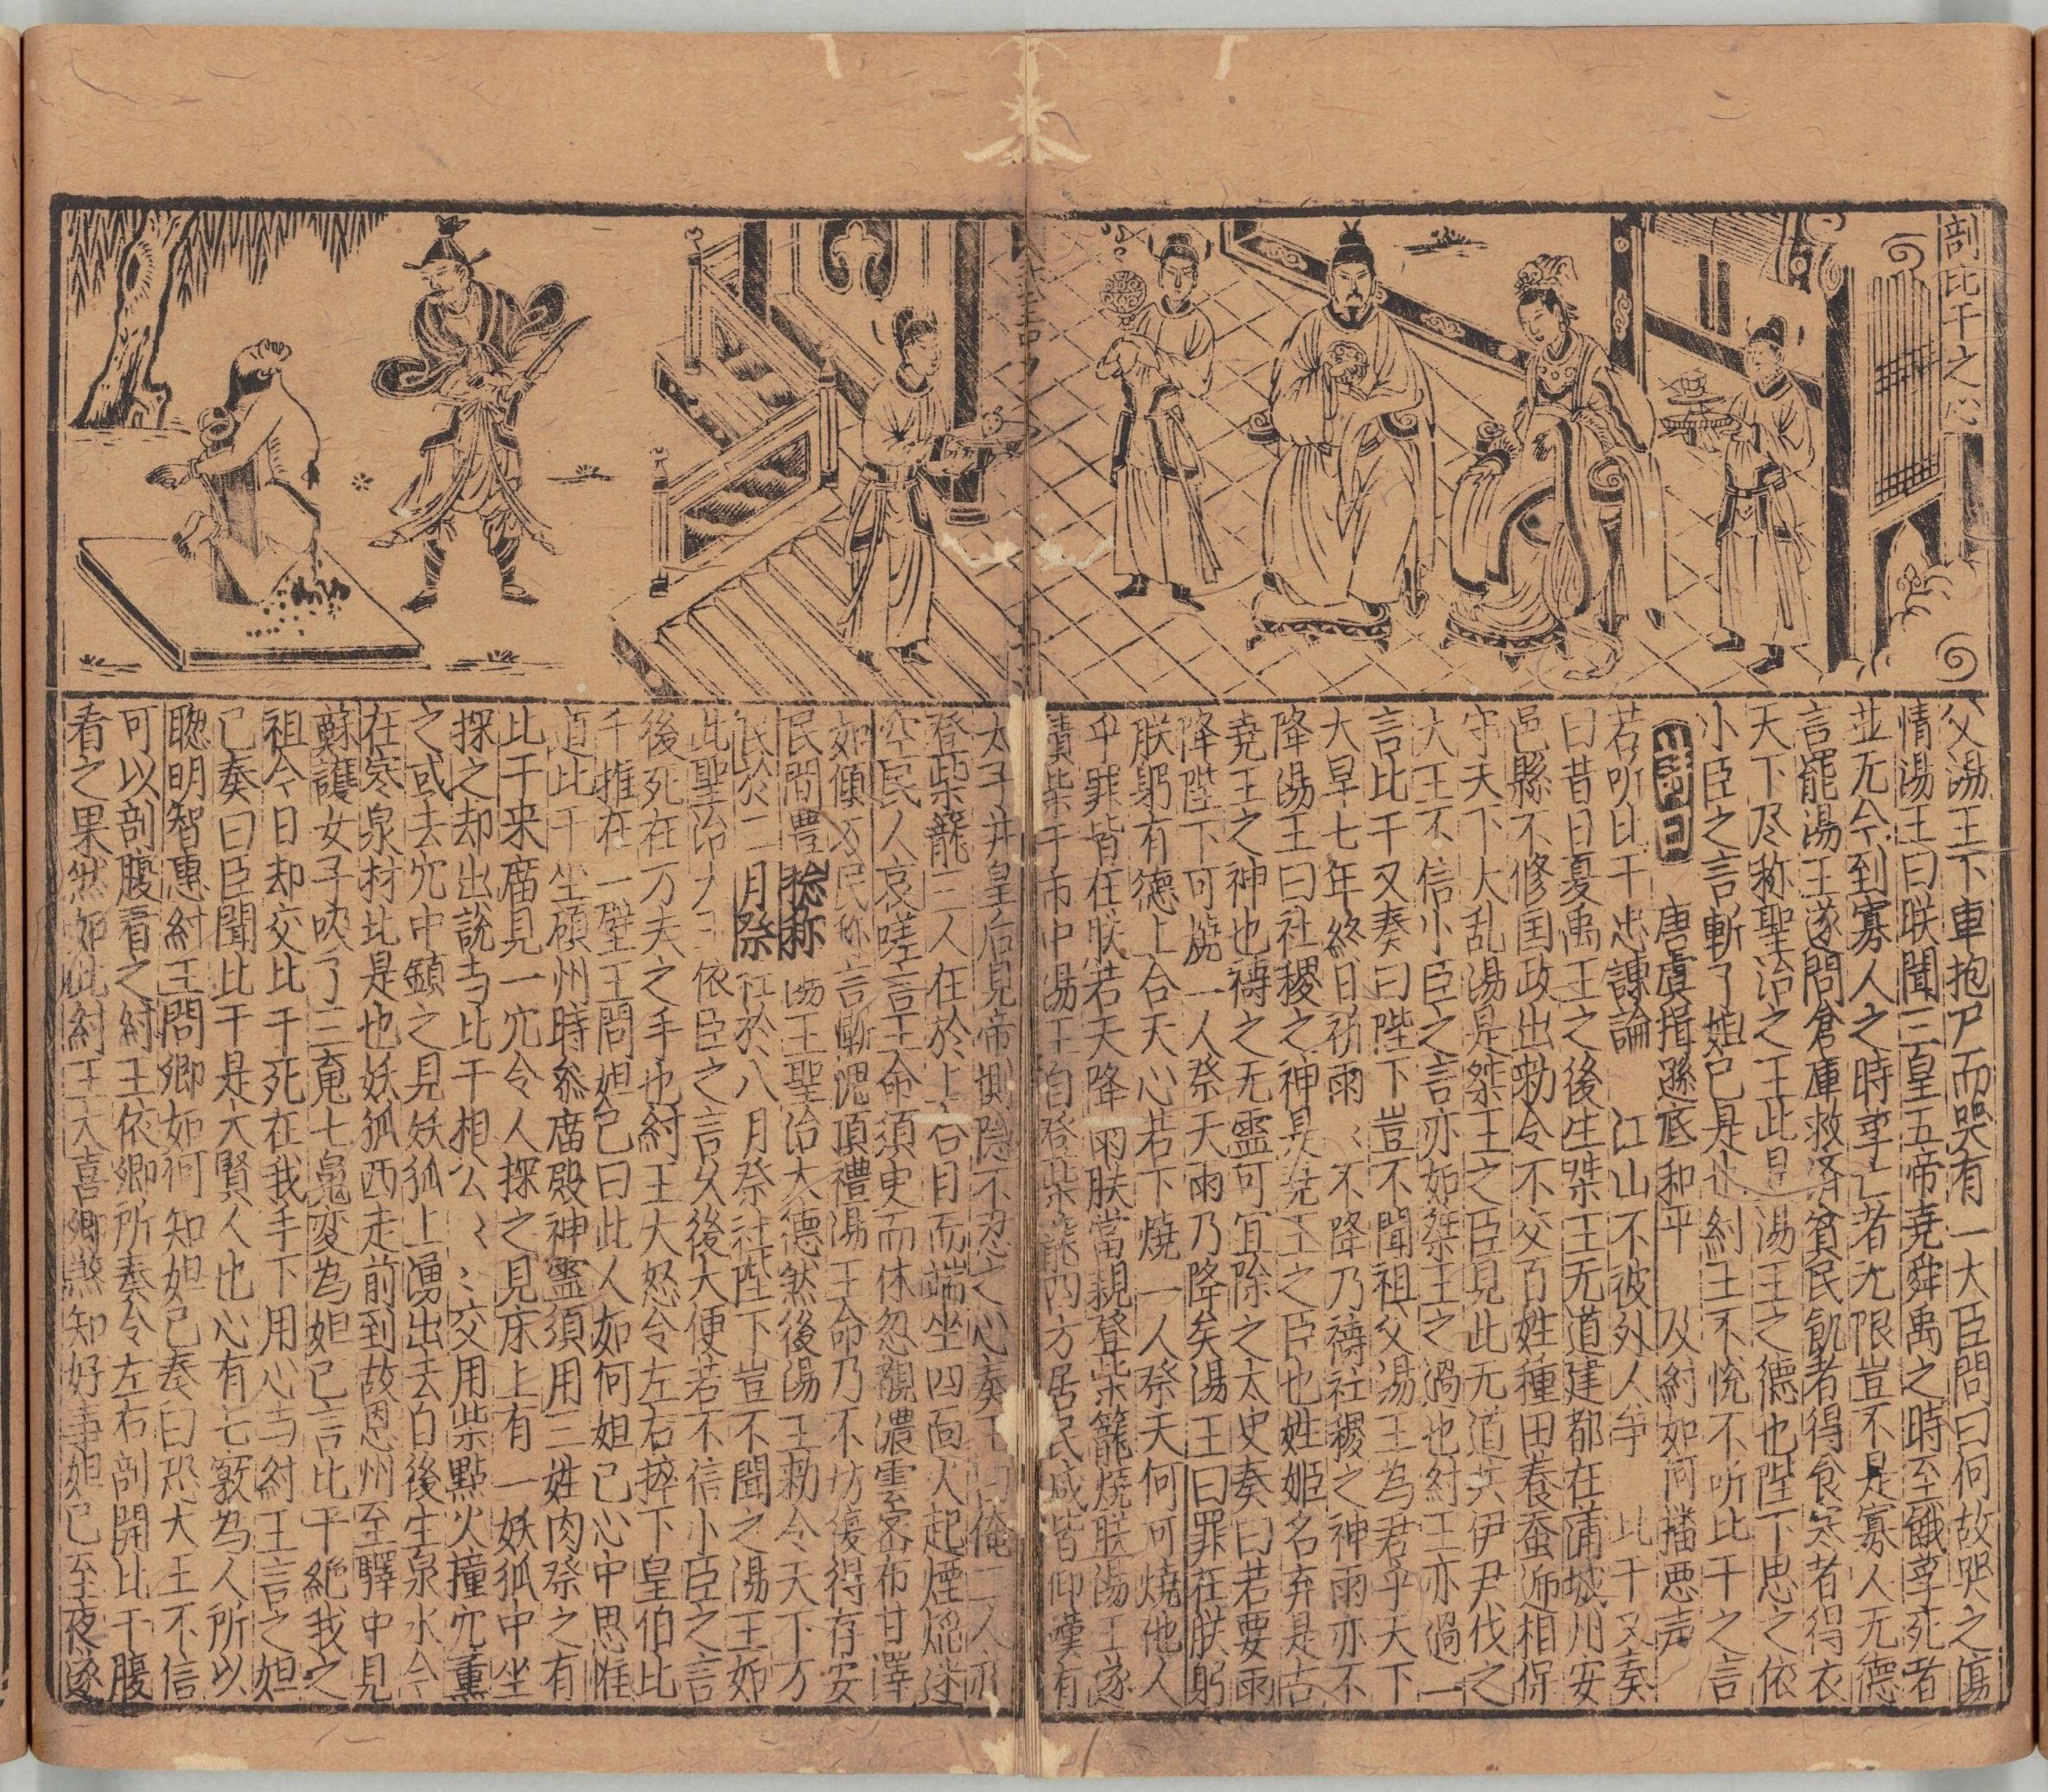 剖比干之心
父湯王下車抱尸而哭有一大臣問曰何故哭之傷
情湯王曰朕聞三皇五帝堯舜禹之時至餓莩死者
並无今到寡人之時莩亡者无限豈不是寡人无德
言罷湯王遂問倉庫救济貧民飢者得食寒者得衣
天下尽称聖治之王此是湯王之德也陛下思之依
小臣之言斬了妲己是也紂王不悅不听比干之言
詩曰 唐虞揖遜底和平 及紂如何播悪声
若听比干忠諫論 江山不被外人争 比干又奏
曰昔日夏禹王之後生桀王无道建都在蒲城川安
邑縣不修国政出勑令不交百姓種田養蚕迊相保
守天下大乱湯是桀王之臣見此无道共伊尹伐之
大王不信小臣之言亦如桀王之過也紂王亦過一
言比干又奏曰陛下豈不聞祖父湯王為君乎天下
大旱七年終日祈雨〻不降乃禱社稷之神雨亦不
降湯王曰社稷之神是堯王之臣也姓姬名弃是古
堯王之神也禱之无靈可宜除之太史奏曰若要雨
降陛下可燒一人祭天雨乃降矣湯王曰罪在朕躬
朕躬有德上合天心若下燒一人祭天何可燒他人
乎罪皆在朕若天降雨朕當親登柴籠燒朕湯王遂
積柴于市中湯王自登柴籠四方居民咸皆仰嘆有
太子并皇后見帝惻隱不忍之心奏王曰俺二人
登柴籠三人在於上合目而端坐四面火起煙焰迷
空民人哀嗟言王命須臾而休忽覩濃雲密布甘澤
如傾万民称言慚愧頂禮湯王命乃不妨復得存安
民間豊稔称湯王聖治大德然後湯王勑令天下万
民於二月祭社於八月祭社陛下豈不聞之湯王如
此聖治大王依臣之言久後大便若不信小臣之言
後死在万夫之手也紂王大怒令左右捽下皇伯比
千推在一壁王問妲己曰此人如何妲己心中思惟
道比干坐碩州時祭庿殿神靈須用三姓肉祭之有
比干来庿見一穴令人探之見床上有一妖狐中坐
探之却出說与比干相公〻〻交用柴點火撞穴薰
之或去穴中鎮之見妖狐上湧出去白後生泉水今
在寒泉村北是也妖狐西走前到故恩州至驛中見
蘇護女子吹了三䰟七䰟変為妲己言比干絶我之
祖今日却交比干死在我手下用心与紂王言之妲
己奏曰臣聞比干是大賢人也心有七竅為人所以
聰明智惠紂王問卿如何知妲己奏曰恐大王不信
可以剖腹看之紂王依卿所奏令左右剖開比干腹
看之果然如此紂王大喜卿煞知好事妲己至夜遂